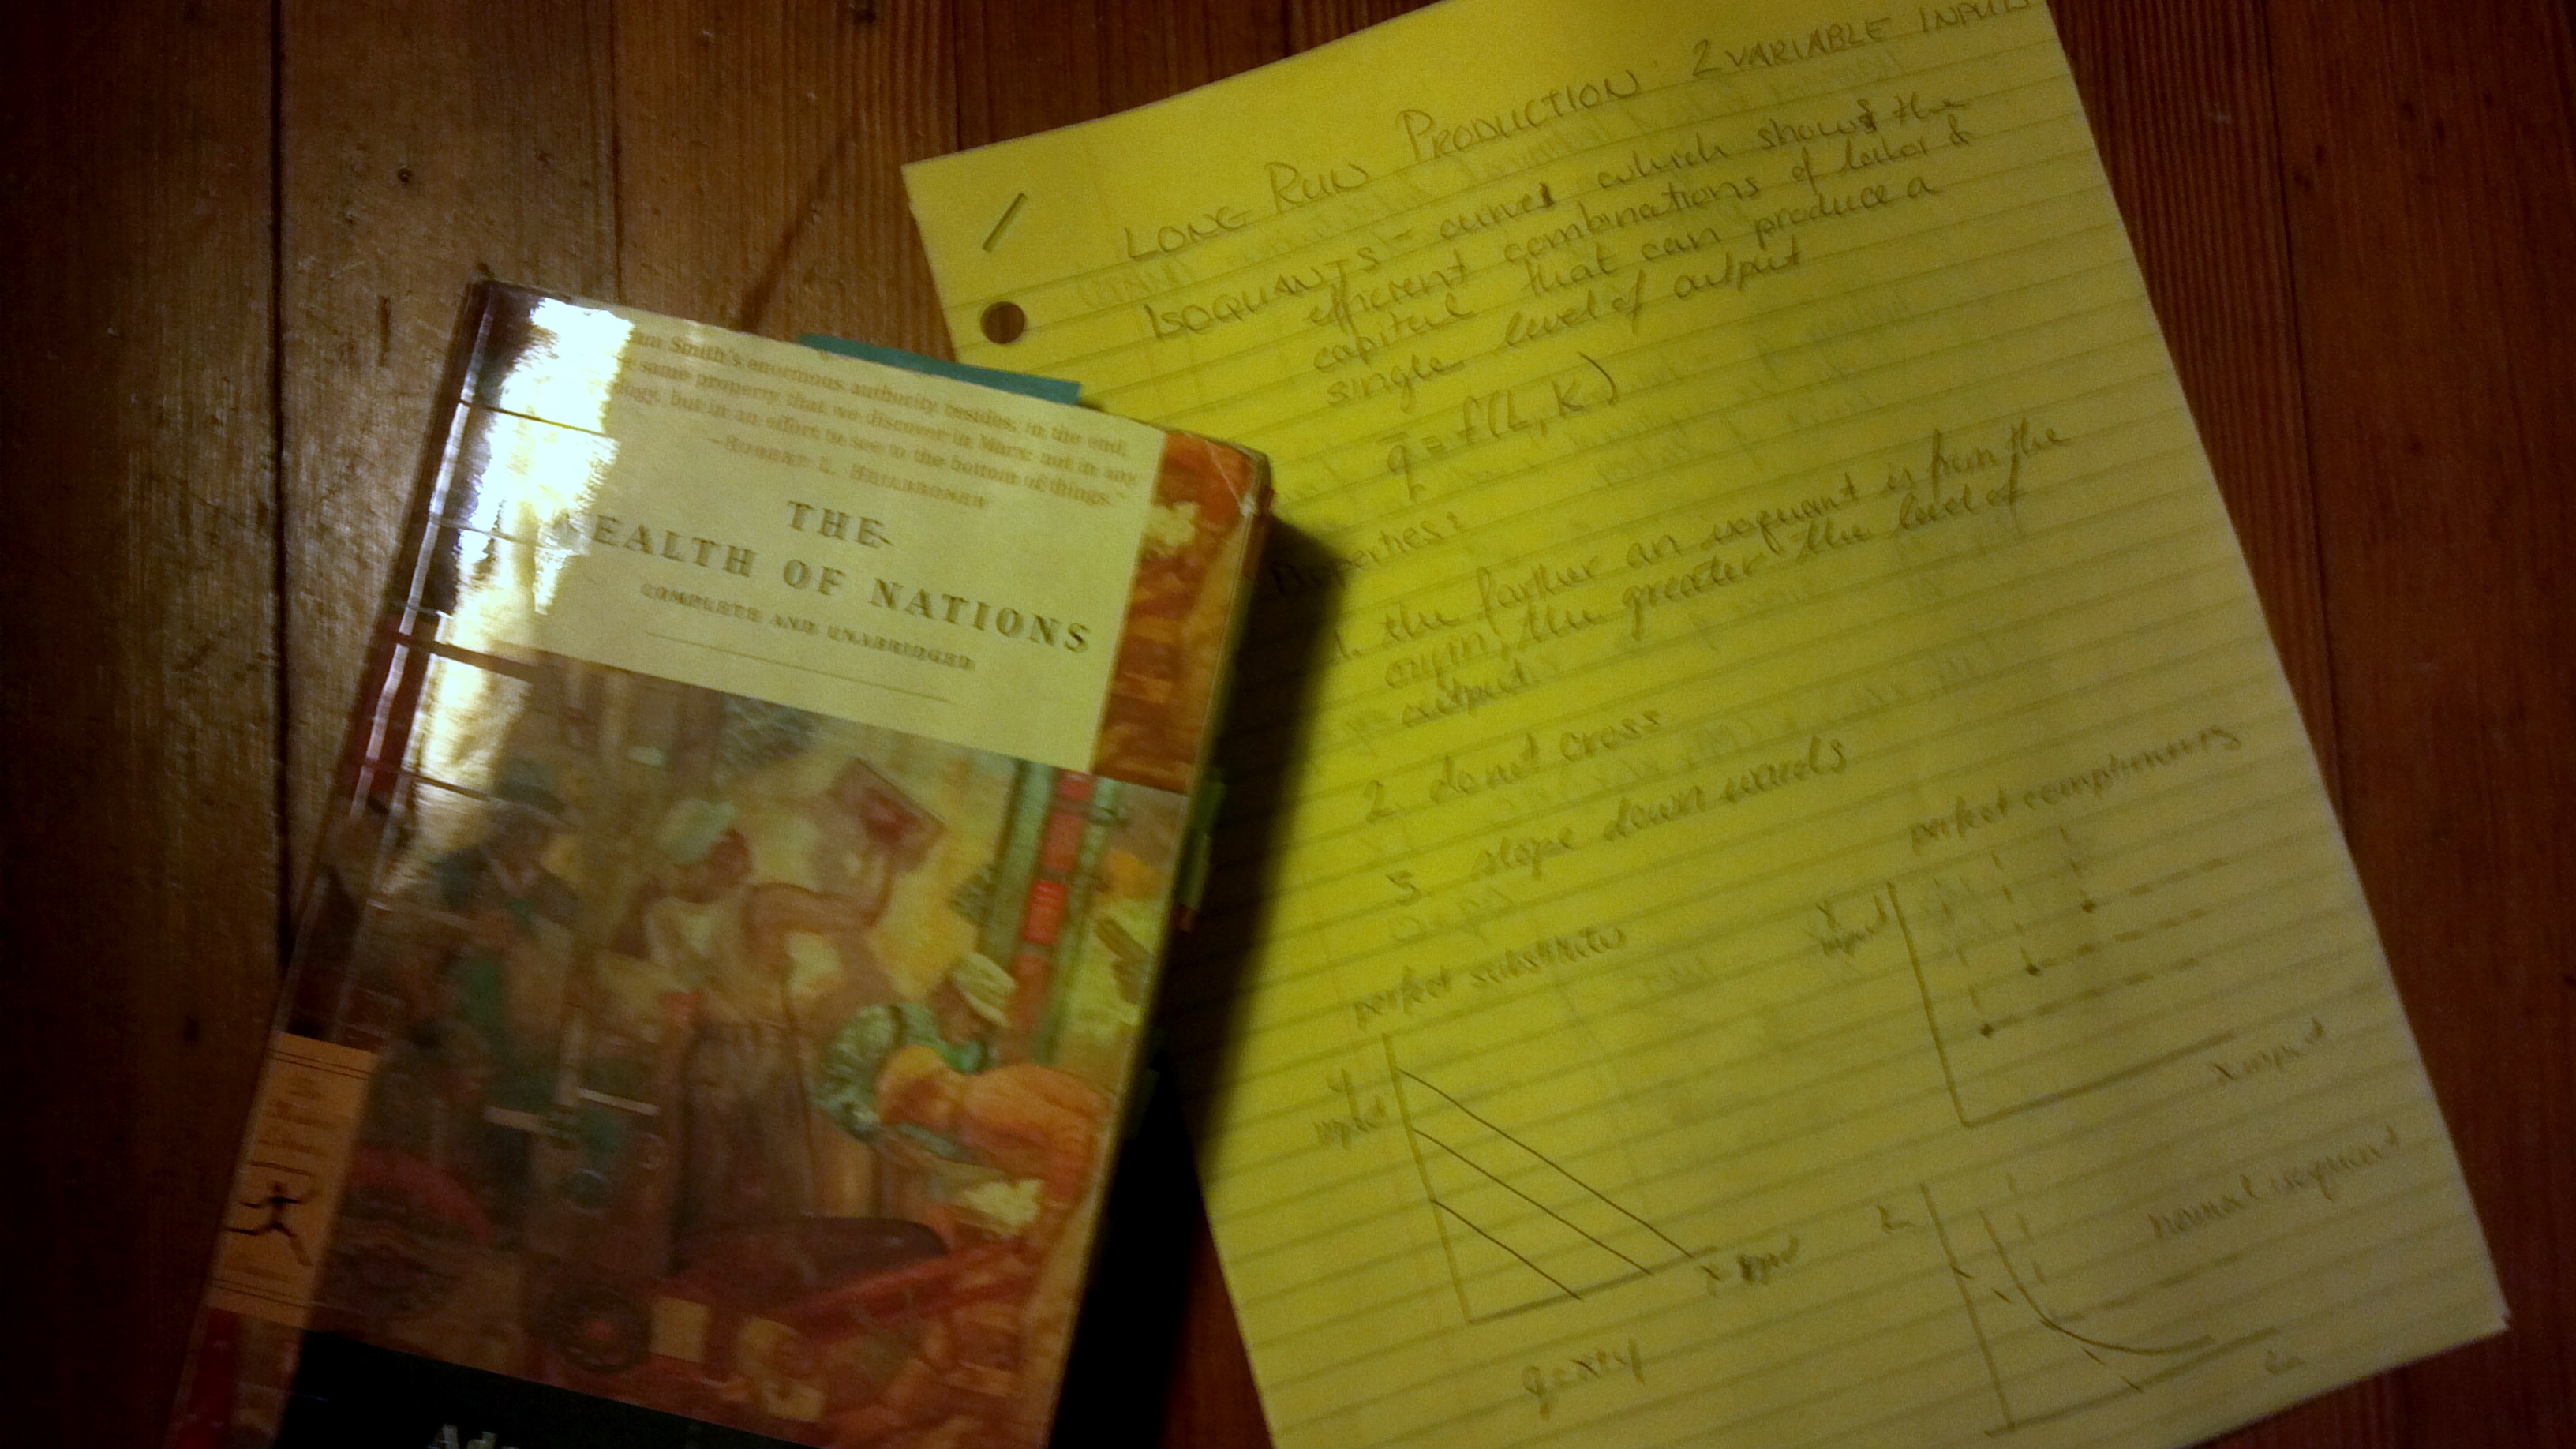 Smith's enormous authority resides, in the end,
same property that we discover in Marx: not in any
but in an effort to see to the bottom of things."
—ROBERT L. HEILBRONER
THE
WEALTH OF NATIONS
COMPLETE AND UNABRIDGED
LONG RUN PRODUCTION: 2 VARIABLE INPUTS
ISOQUANTS - curves which shows the
efficient combinations of labor &
capital that can produce a
single level of output
q̄ = f(L, K)
Properties:
1. the farther an isoquant is from the
origin, the greater the level of
output.
2. do not cross
3. slope downwards
perfect substitutes
y
input
x input
q=x+y
perfect compliments
Y
input
x input
K
normal isoquant
L